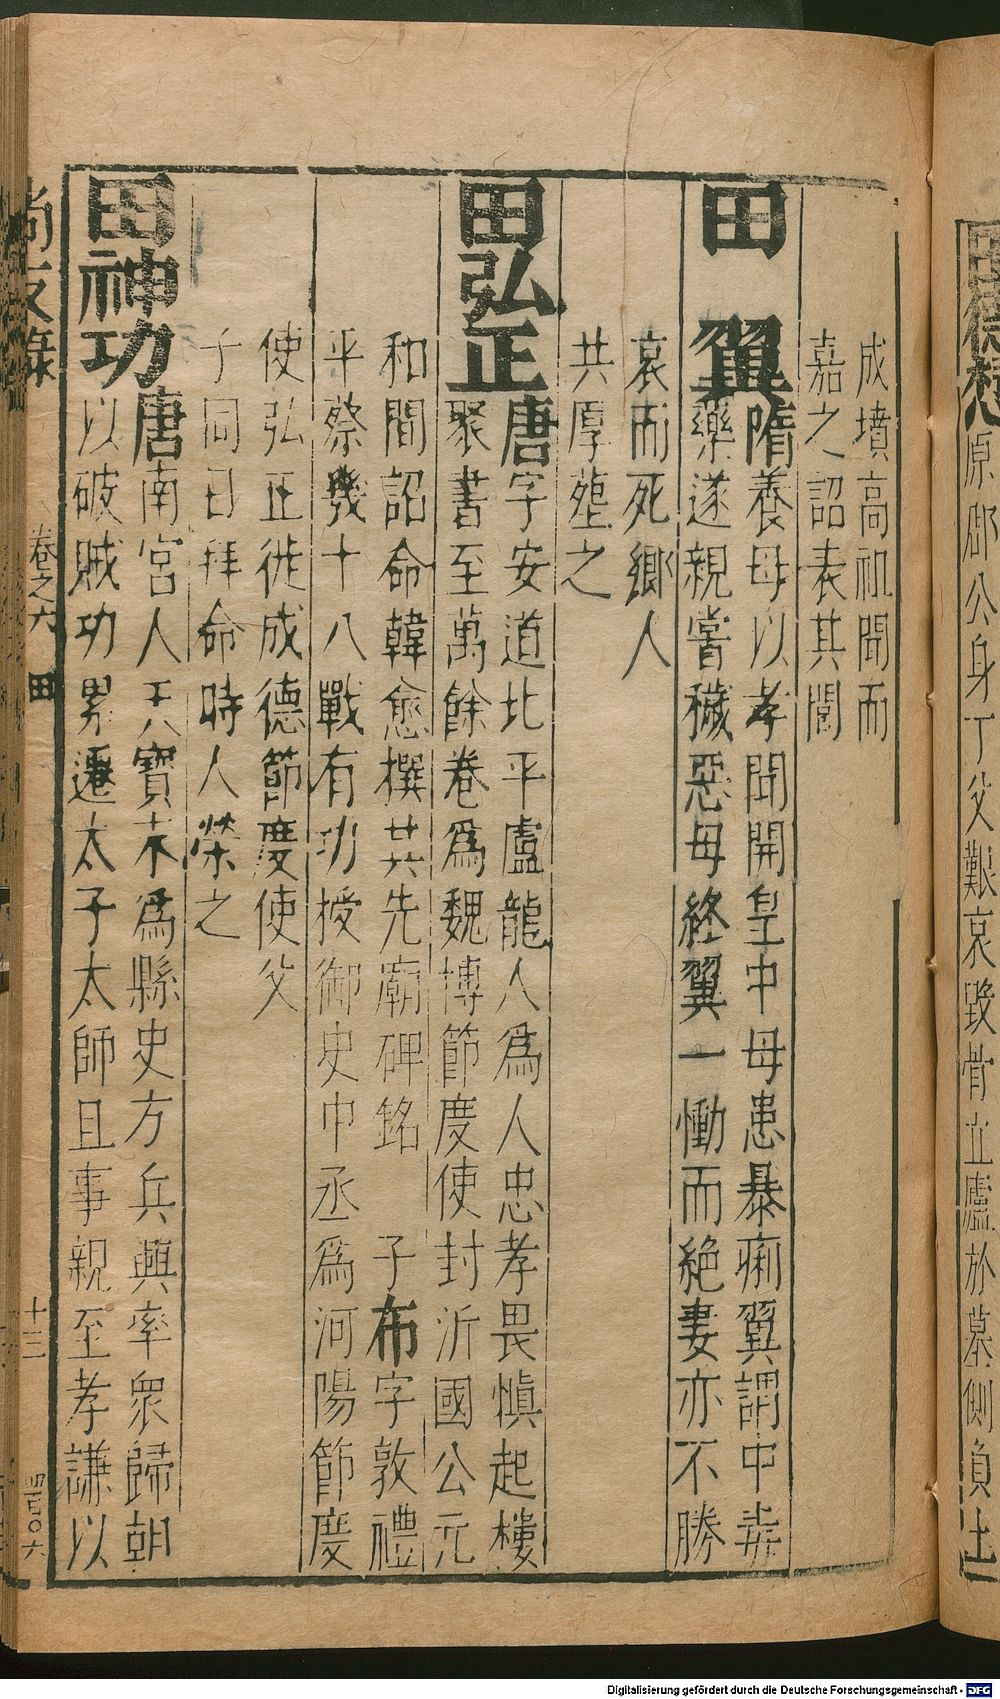 田德懋原郡公身丁父艱哀毀骨立廬於墓側負土
成墳高祖聞而
嘉之詔表其閭
田翼隋養母以孝聞開皇中母患暴痢翼謂中毒
藥遂親嘗穢惡母終翼一慟而絶妻亦不勝
哀而死鄉人
共厚塟之
田弘正唐字安道北平盧龍人爲人忠孝畏慎起樓
聚書至萬餘卷爲魏博節度使封沂國公元
和間詔命韓愈撰其先廟碑銘 子布字敦禮
平蔡幾十八戰有功授御史中丞爲河陽節度
使弘正徙成德節度使父
子同日拜命時人榮之
田神功唐南宮人天寶末爲縣史方兵興率衆歸朝
以破賊功累遷太子太師且事親至孝謙以
尚友錄 卷之六 田 十三 四百〇六
Digitalisierung gefördert durch die Deutsche Forschungsgemeinschaft - DFG